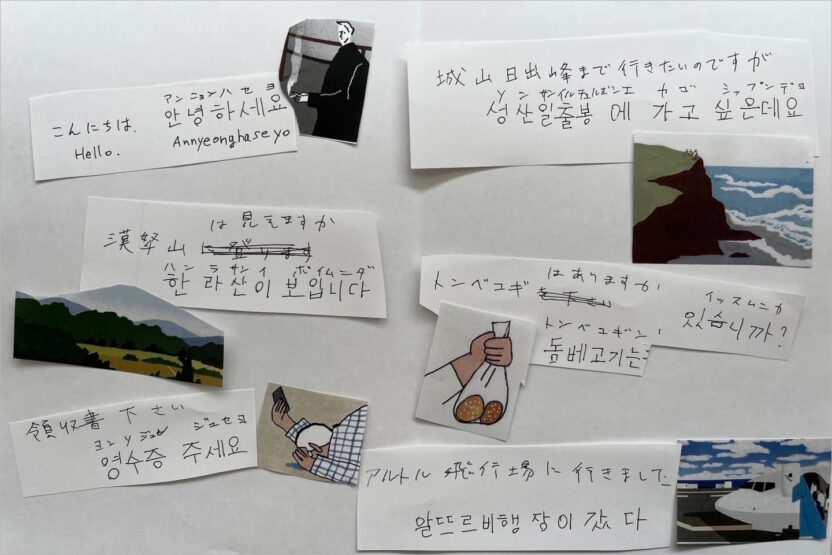 アンニョンハセヨ
こんにちは。 안녕하세요
Hello. Annyeonghaseyo
城山日出峰まで行きたいのですが
성산일출봉에 가고 싶은데요
は見えますか
漢拏山
ハンラサンイ ボイムニダ
한라산이 보입니다
トンベコギ はありますか
イッスムニカ
있습니까?
トンベコギヌン
돔베고기는
領収書下さい
ジュセヨ
영수증 주세요
アルトル飛行場に行きました
알뜨르비행장이 갔다